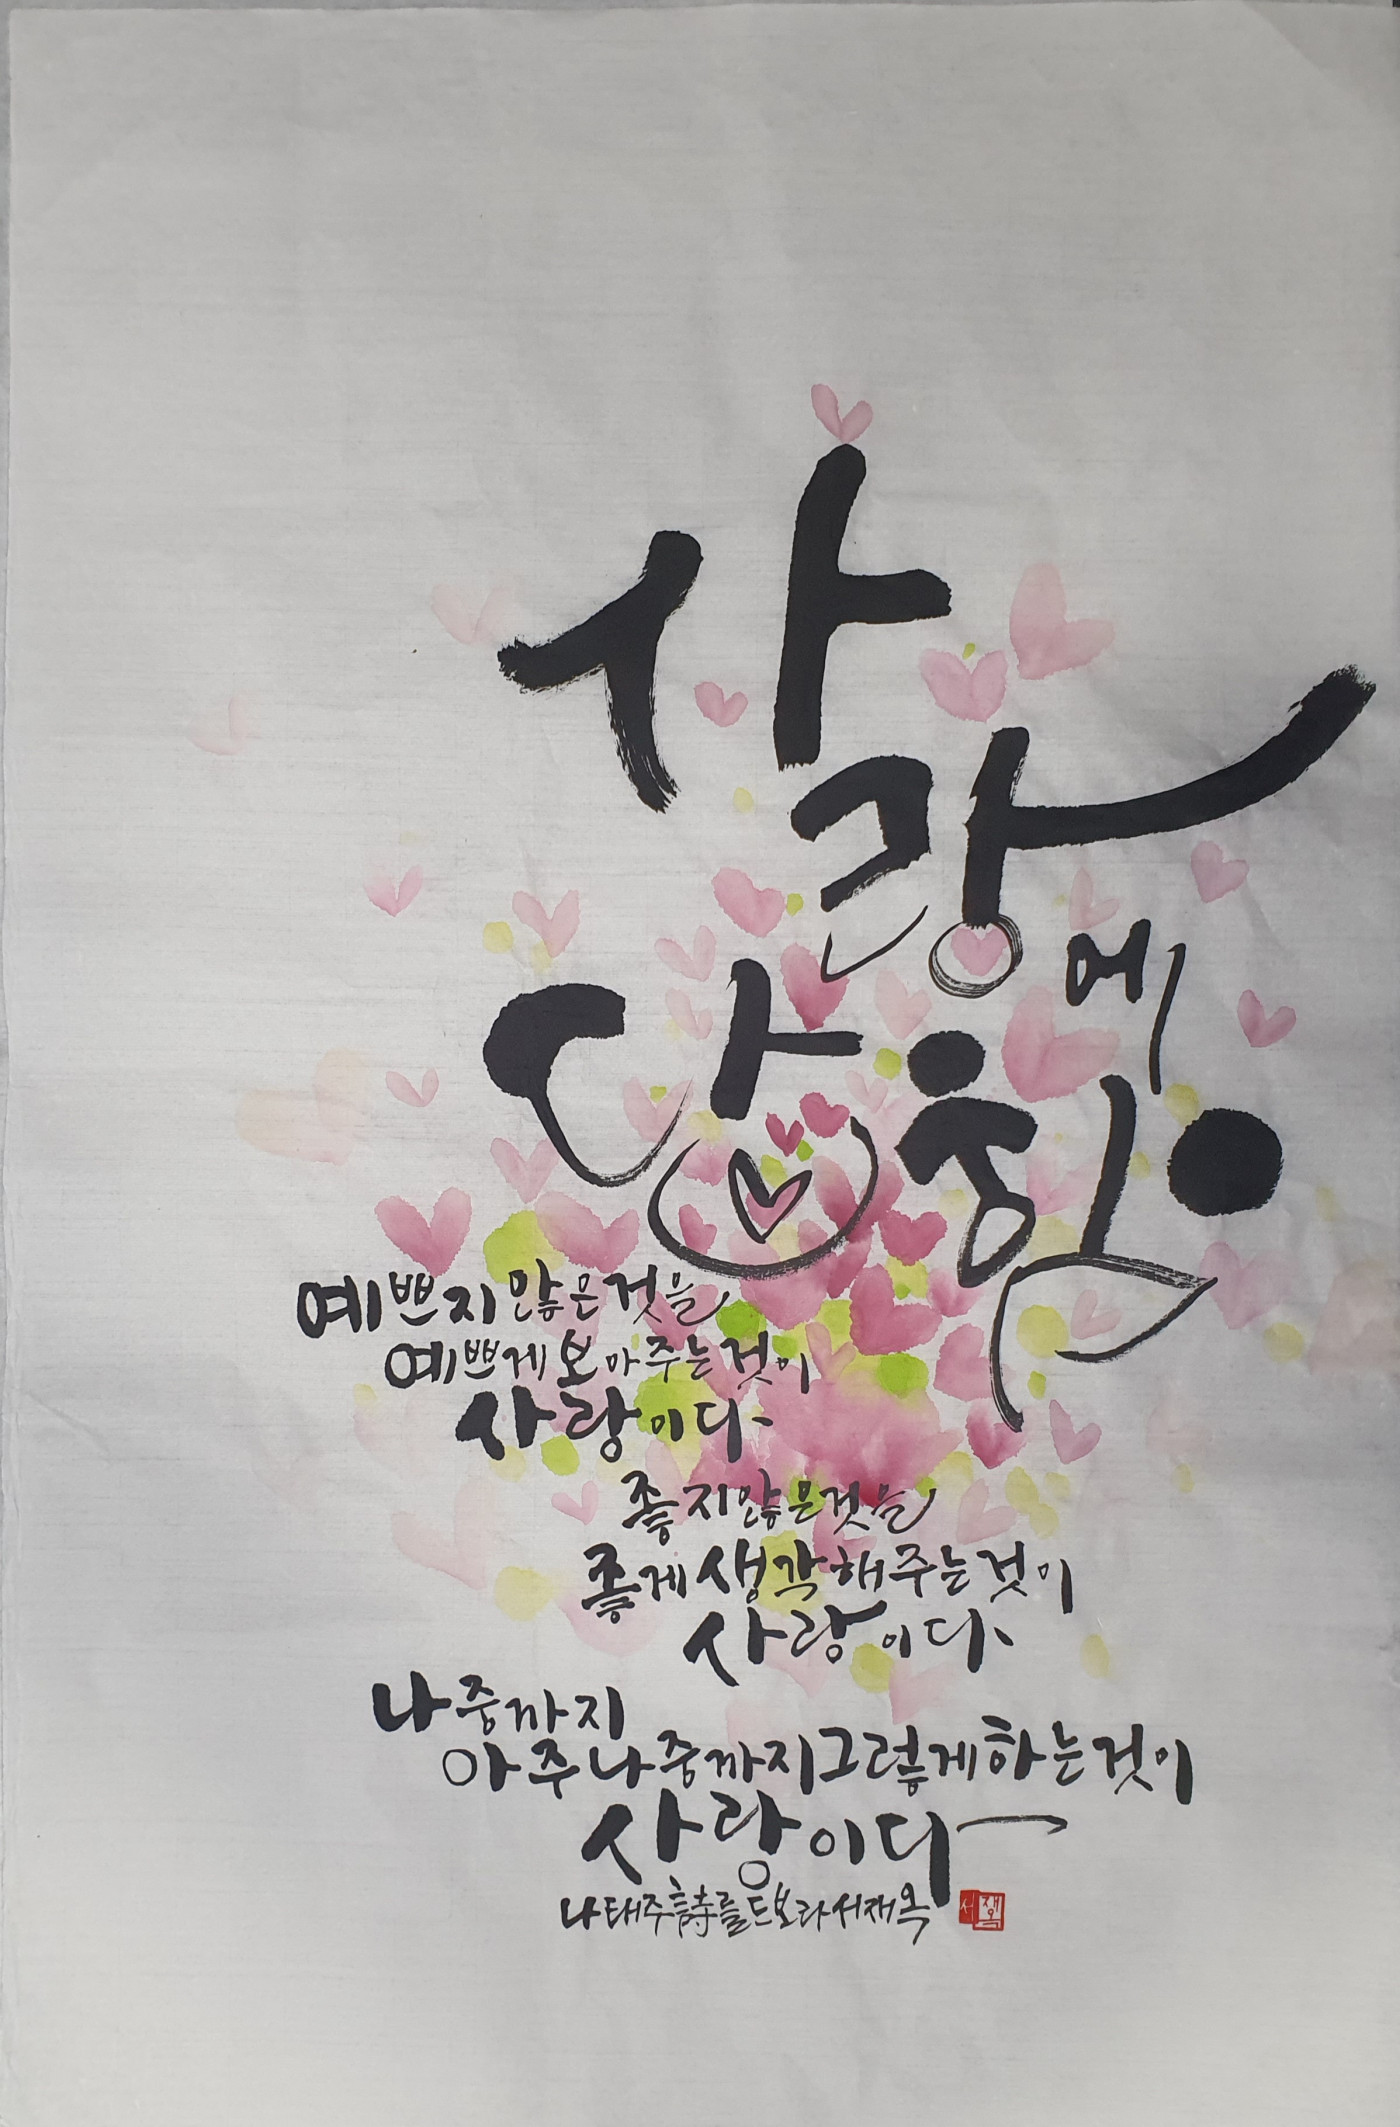 사랑에
답한다
예쁘지 않은 것을
예쁘게 보아주는 것이
사랑이다
좋지 않은 것을
좋게 생각해주는 것이
사랑이다
나중까지
아주 나중까지 그렇게 하는 것이
사랑이다
나태주 詩를 드보라 서재옥
서 재옥